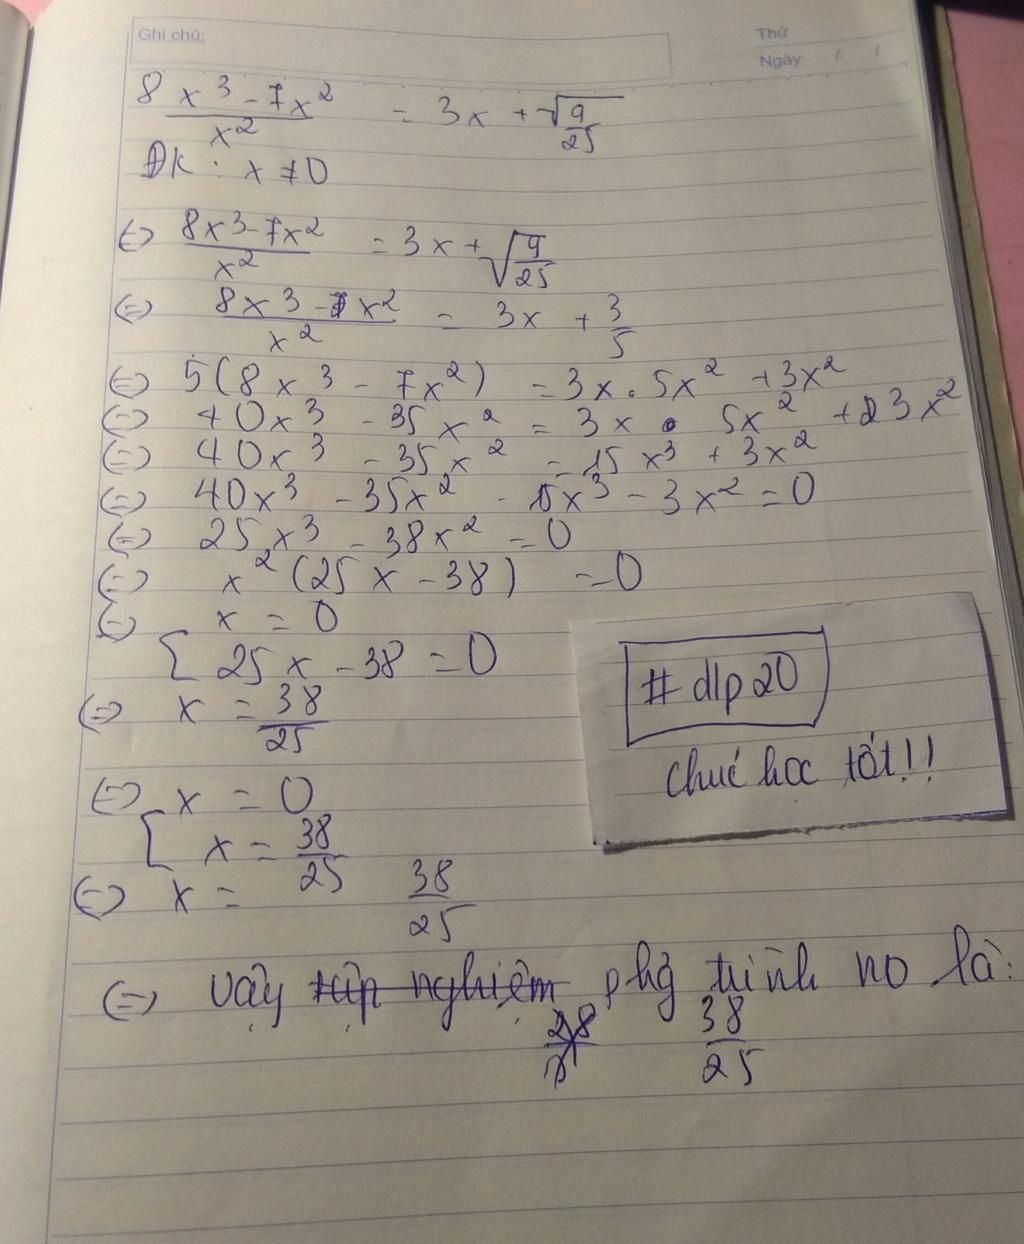 Ghi chú:
Thứ
Ngày / /
8 x³ - 7x² / x² = 3x + √(9/25)
ĐK : x ≠ 0
(=) 8x³ - 7x² / x² = 3x + √(9/25)
(=) 8x³ - 7x² / x² = 3x + 3/5
(=) 5(8x³ - 7x²) = 3x . 5x² + 3x²
(=) 40x³ - 35x² = 3x . 5x² + 3x²
(=) 40x³ - 35x² = 15x³ + 3x²
(=) 40x³ - 35x² - 15x³ - 3x² = 0
(=) 25x³ - 38x² = 0
(=) x² (25x - 38) = 0
(=) x = 0
[ 25x - 38 = 0
(=) x = 38/25
(=) x = 0
[ x = 38/25
(=) x = 38/25
(=) Vậy tập nghiệm phg trình no là:
38/25
# dlp20
chúc học tốt!!